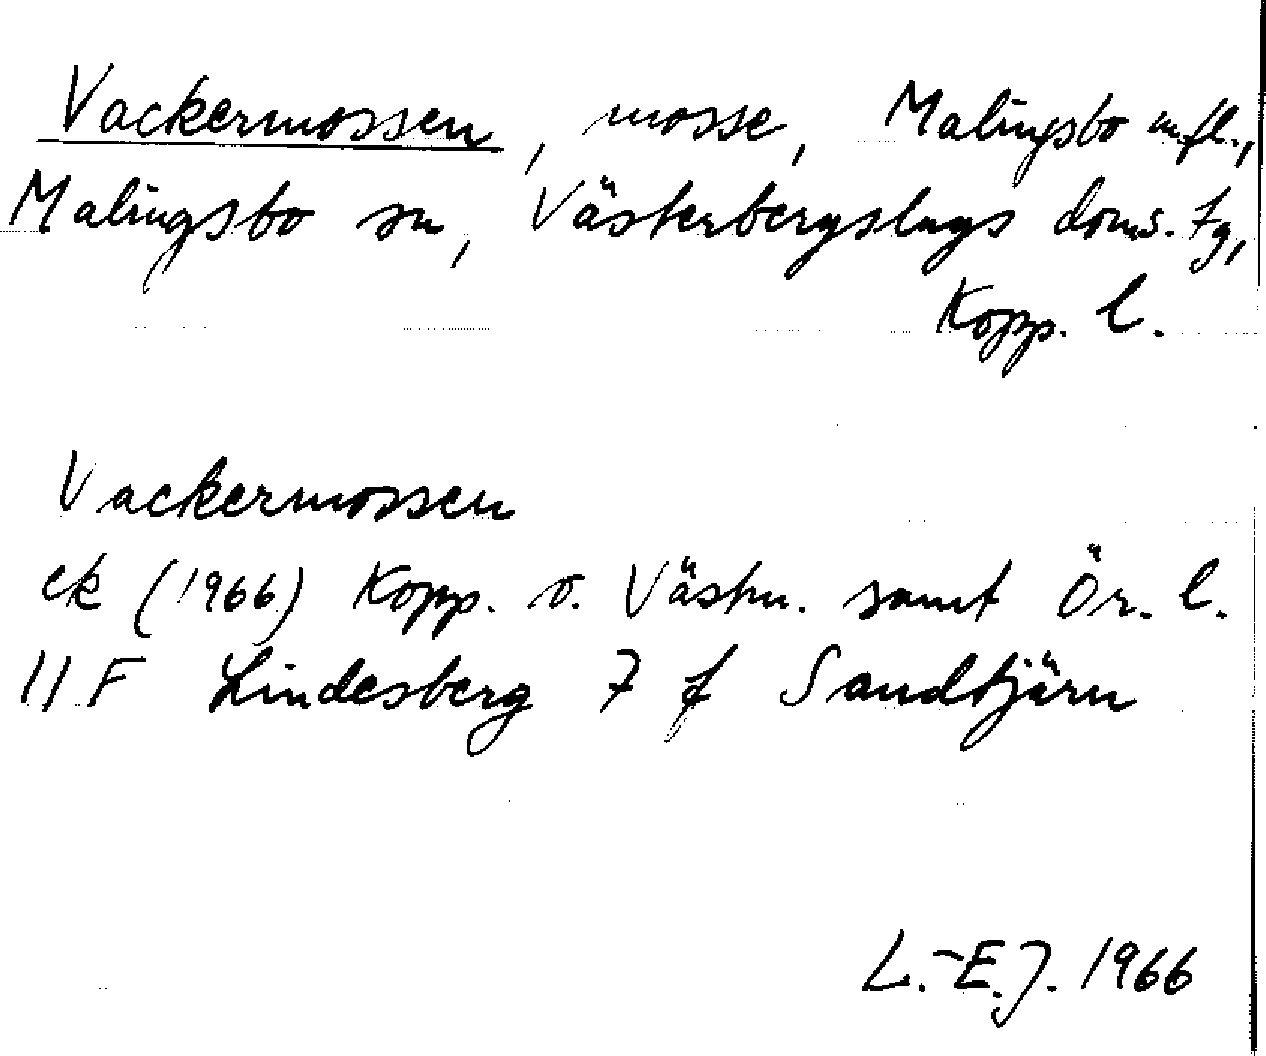 Vackermossen, mosse, Malingsbo m.fl.,
Malingsbo sn, Västerbergslags doms. tg,
Kopp. l.
Vackermossen
ek (1966) Kopp. o. Västm. samt Ör. l.
11 F Lindesberg 7 f Sandtjärn
L.-E.J. 1966